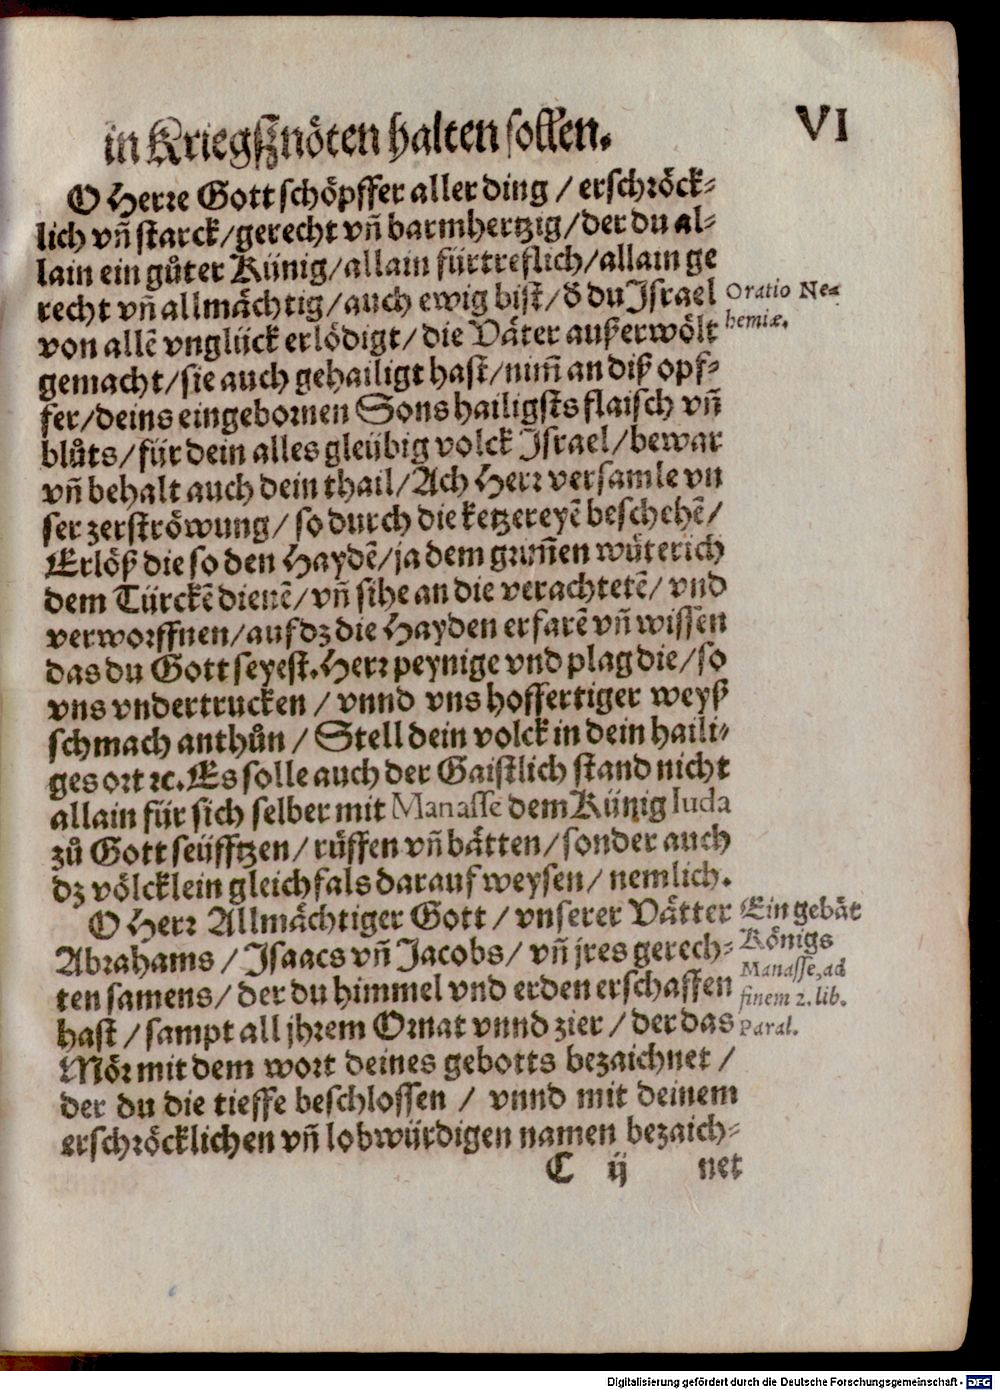 in Kriegßnöten halten sollen.
VI
O Herre Gott schöpffer aller ding / erschröck-
lich vñ starck/gerecht vñ barmhertzig/der du al-
lain ein gůter Künig/allain fürtreflich/allain ge
recht vñ allmächtig/auch ewig bist/ď du Israel
von allē vnglück erlödigt/die Väter außerwölt
gemacht/sie auch gehailigt hast/nim̃ an diß opf-
fer/deins eingebornen Sons hailigsts flaisch vñ
blůts/für dein alles gleübig volck Israel/bewar
vñ behalt auch dein thail/Ach Herr versamle vn
ser zerströwung/so durch die ketzereyē beschehē/
Erlöß die so den Haydē/ja dem grim̃en wüterich
dem Türckē dienē/vñ sihe an die verachtetē/vnd
verworffnen/auf dz die Hayden erfarē vñ wissen
das du Gott seyest.Herr peynige vnd plag die/so
vns vndertrucken / vnnd vns hoffertiger weyß
schmach anthůn / Stell dein volck in dein haili-
ges ort ꝛc.Es solle auch der Gaistlich stand nicht
allain für sich selber mit Manasse dem Künig Iuda
zů Gott seüfftzen/rüffen vñ bätten/sonder auch
dz völcklein gleichfals darauf weysen/nemlich.
O Herr Allmächtiger Gott/vnserer Vätter
Abrahams/Isaacs vñ Jacobs/vñ jres gerech-
ten samens/der du himmel vnd erden erschaffen
hast/sampt all jhrem Ornat vnnd zier/der das
Mör mit dem wort deines gebotts bezaichnet /
der du die tieffe beschlossen / vnnd mit deinem
erschröcklichen vñ lobwürdigen namen bezaich-
C ij net
Oratio Ne-
hemiæ.
Ein gebät
Königs
Manasse, ad
finem 2. lib.
Paral.
Digitalisierung gefördert durch die Deutsche Forschungsgemeinschaft - DFG